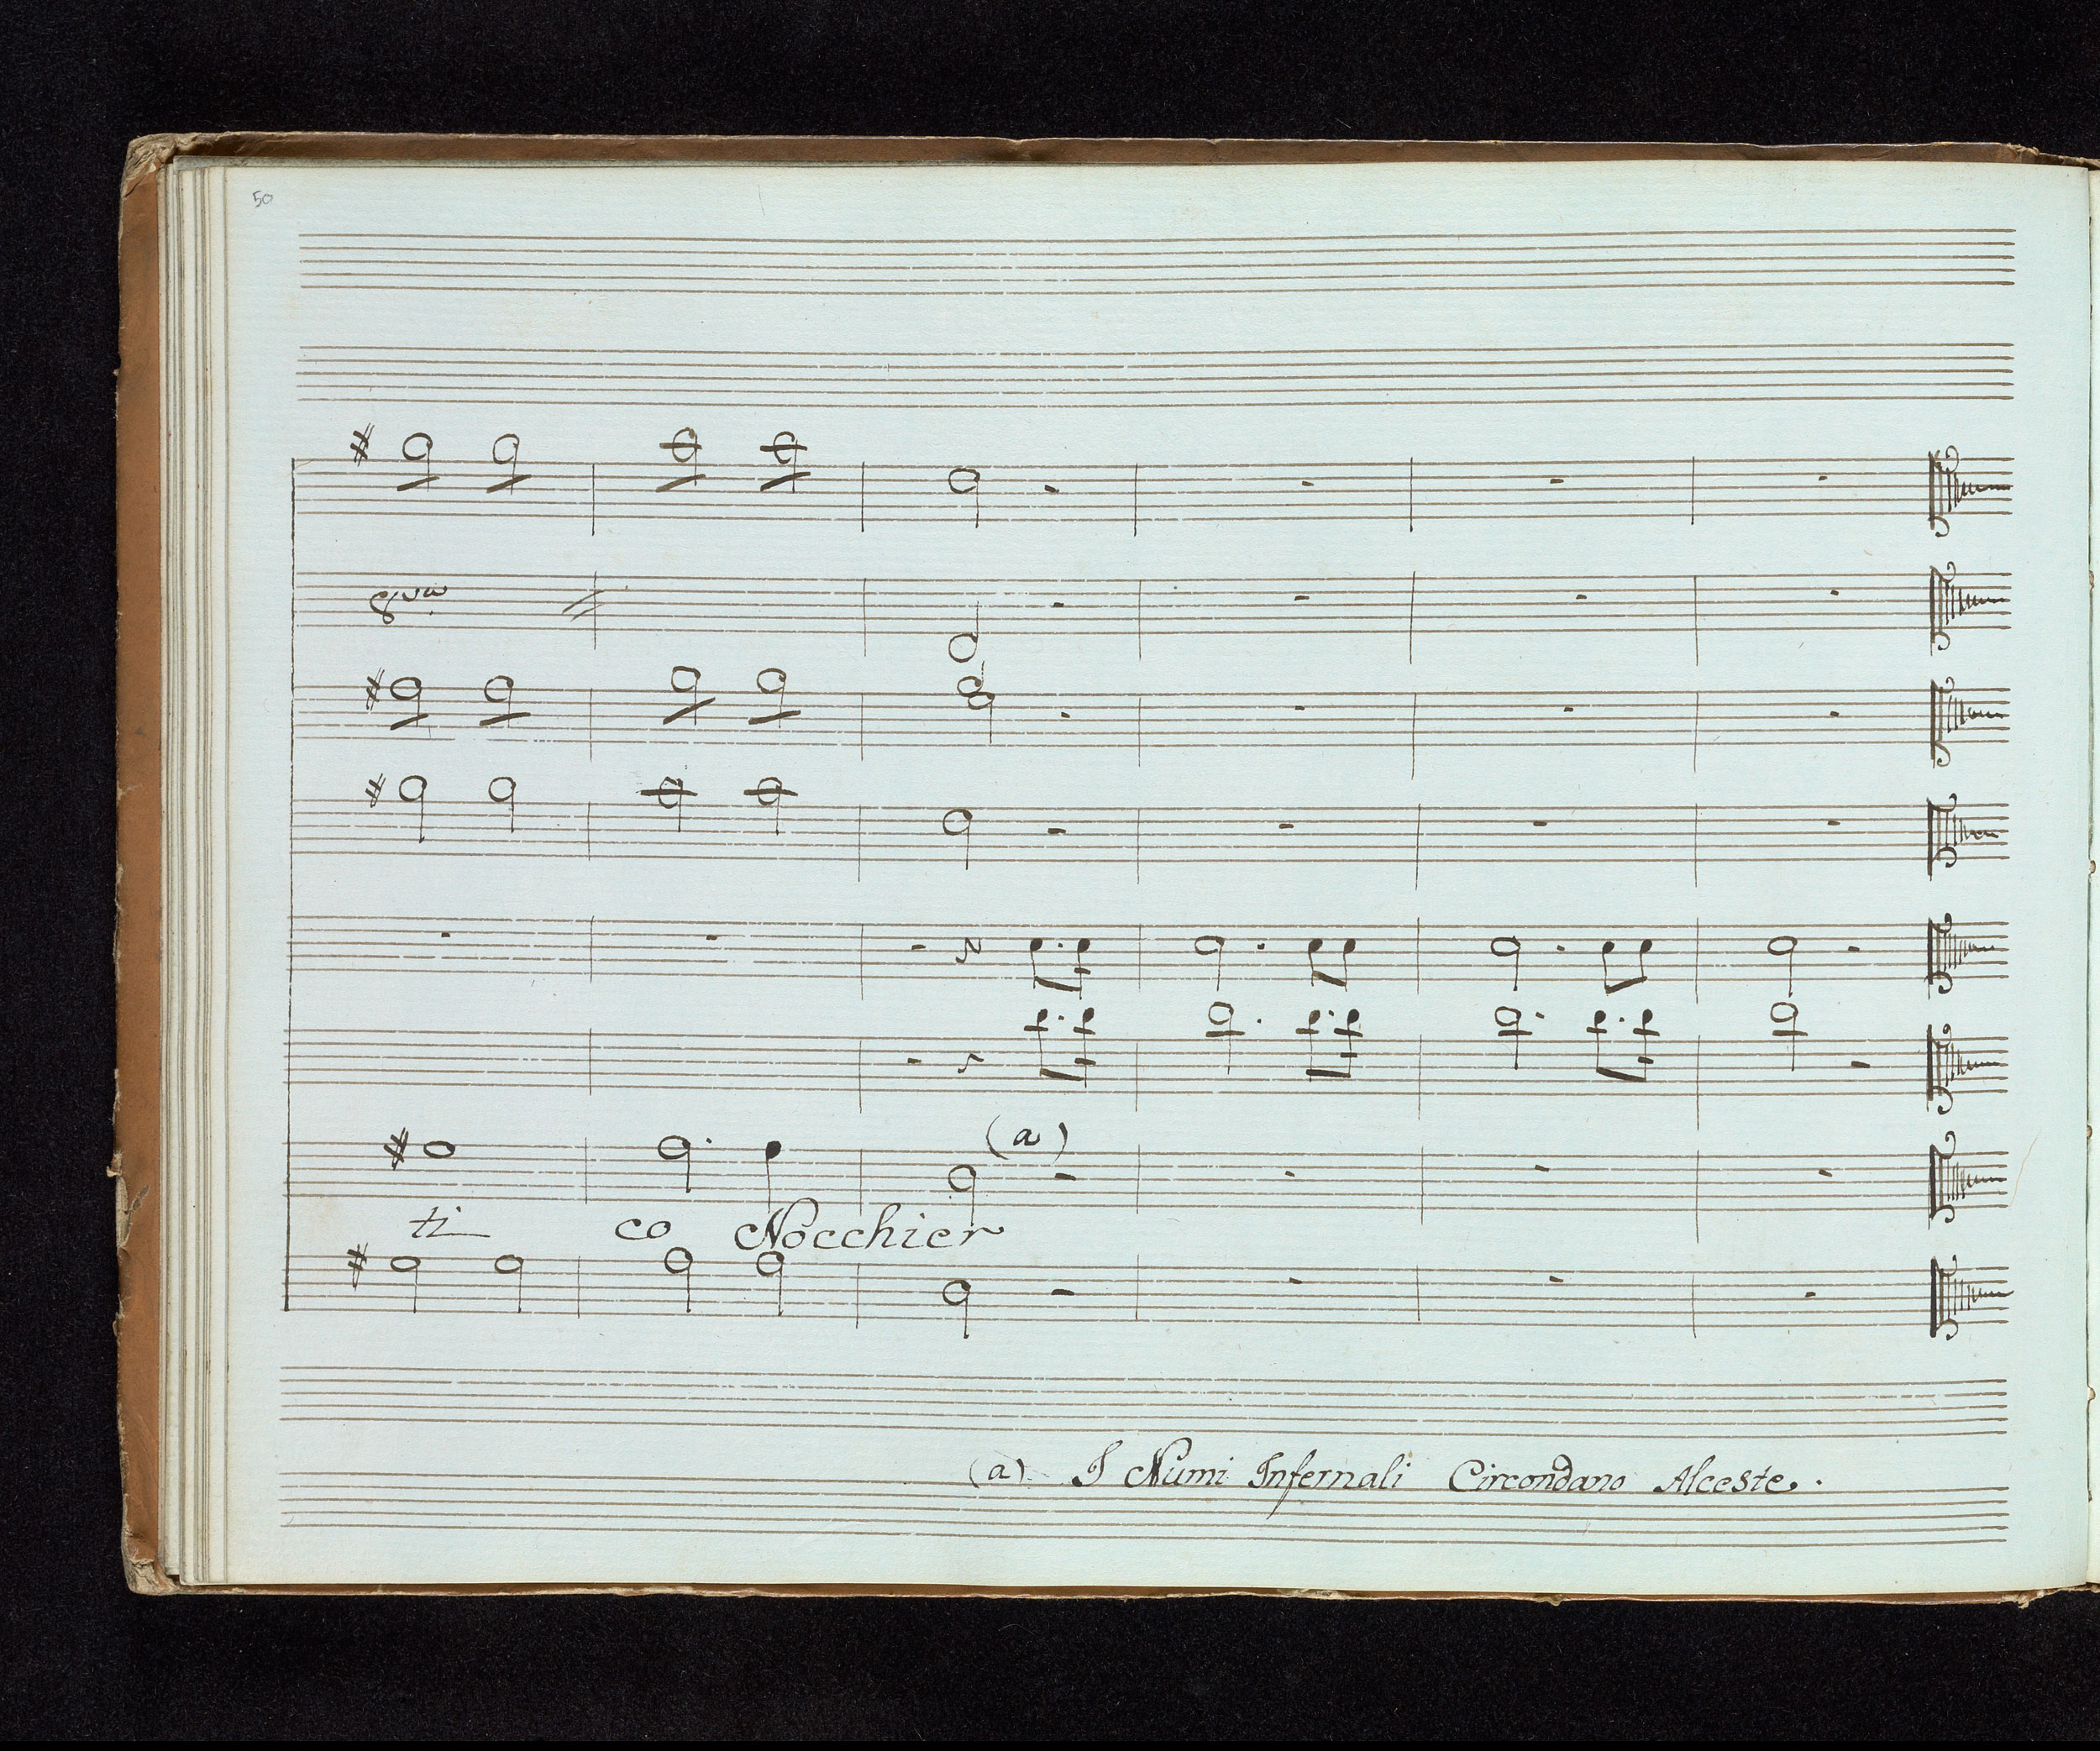 50
8va
(a)
ti co Nocchier
(a) I Numi Infernali Circondano Alceste.